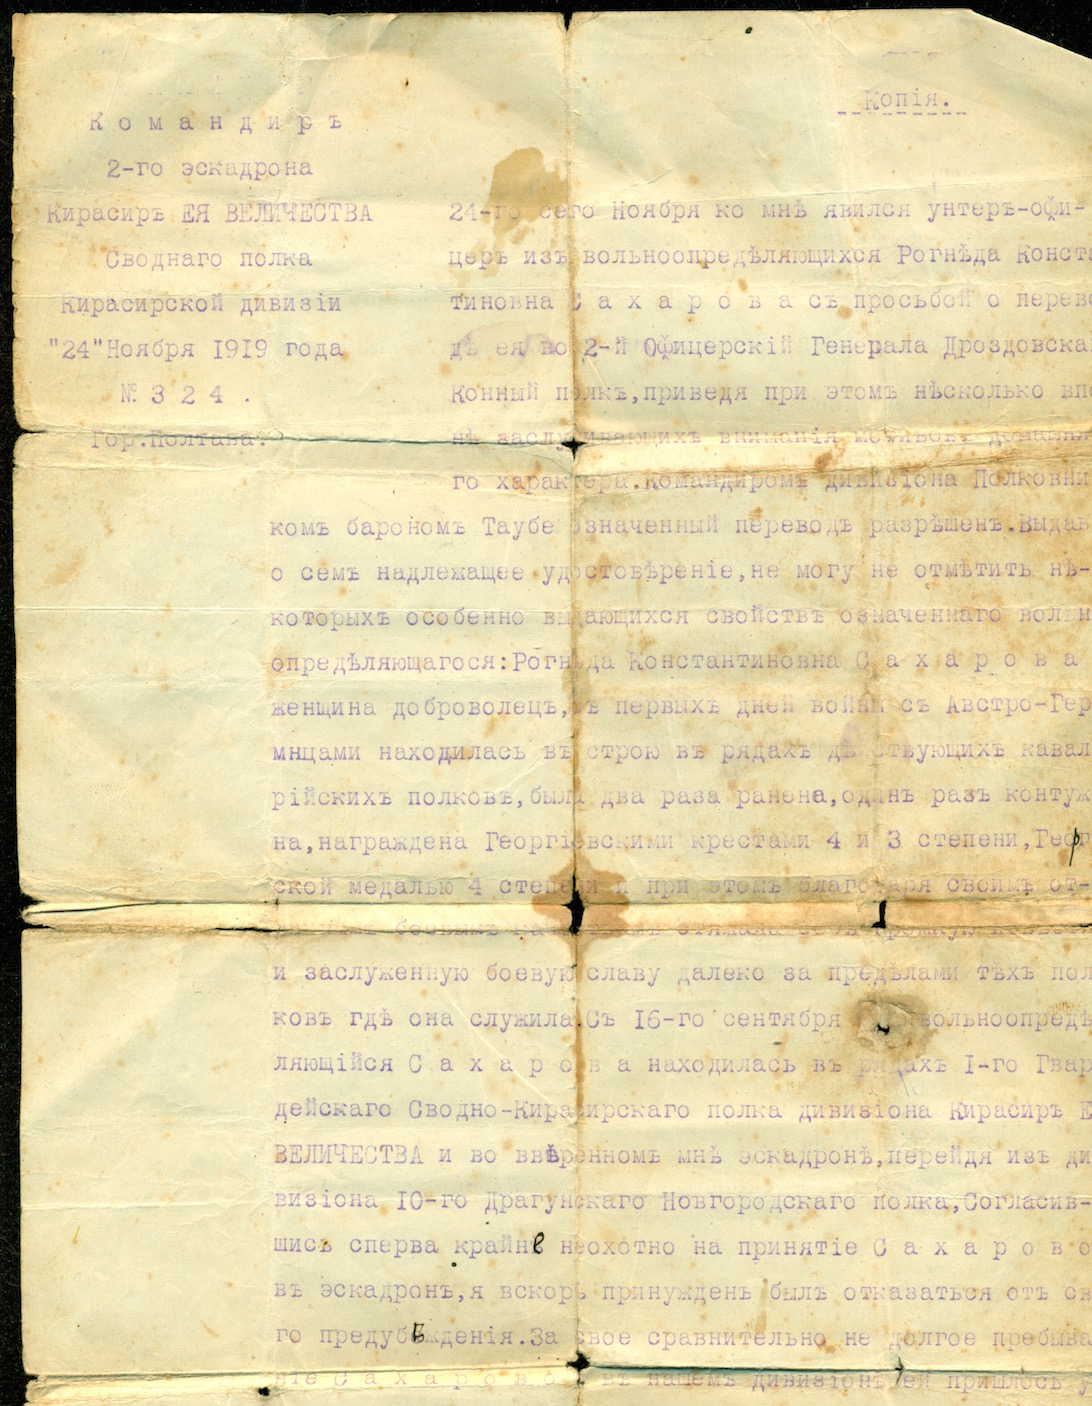 Копія.
К о м а н д и р ъ
2-го эскадрона
Кирасиръ ЕЯ ВЕЛИЧЕСТВА
Своднаго полка
Кирасирской дивизіи
"24"Ноября 1919 года
№ 3 2 4 .
Гор.Полтава.
24-го сего Ноября ко мнѣ явился унтеръ-офи-
церъ изъ вольноопредѣляющихся Рогнѣда Конста
тиновна С а х а р о в а съ просьбой о перево
дѣ ея во 2-й Офицерскій Генерала Дроздовска
Конный полкъ,приведя при этомъ нѣсколько впо
нѣ заслуживающихъ вниманія мотивовъ домашня
го характера.Командиромъ дивизіона Полковни
комъ барономъ Таубе означенный переводъ разрѣшенъ.Выдав
о семъ надлежащее удостовѣреніе,не могу не отмѣтить нѣ-
которыхъ особенно выдающихся свойствъ означеннаго вольн
опредѣляющагося:Рогнѣда Константиновна С а х а р о в а
женщина доброволецъ,съ первыхъ дней войны съ Австро-Гер
мнцами находилась въ строю въ рядахъ дѣйствующихъ кавал
рійскихъ полковъ,была два раза ранена,одинъ разъ контуж
на,награждена Георгіевскими крестами 4 и 3 степени,Георг
ской медалью 4 степени и при этомъ благодаря своимъ от-
боевымъ качествамъ стяжала
и заслуженную боевую славу далеко за предѣлами тѣхъ пол
ковъ гдѣ она служила.Съ 16-го сентября вольноопредѣ
ляющійся С а х а р о в а находилась въ рядахъ I-го Гвар
дейскаго Сводно-Кирасирскаго полка дивизіона Кирасиръ Е
ВЕЛИЧЕСТВА и во ввѣренномъ мнѣ эскадронѣ,перейдя изъ ди
визіона 10-го Драгунскаго Новгородскаго полка,Согласив-
шись сперва крайне неохотно на принятіе С а х а р о в о
въ эскадронъ,я вскорѣ принужденъ былъ отказаться отъ св
го предубѣжденія.За свое сравнительно не долгое пребыва
ніе С а х а р о в о й въ нашемъ дивизіонѣ ей пришлось у